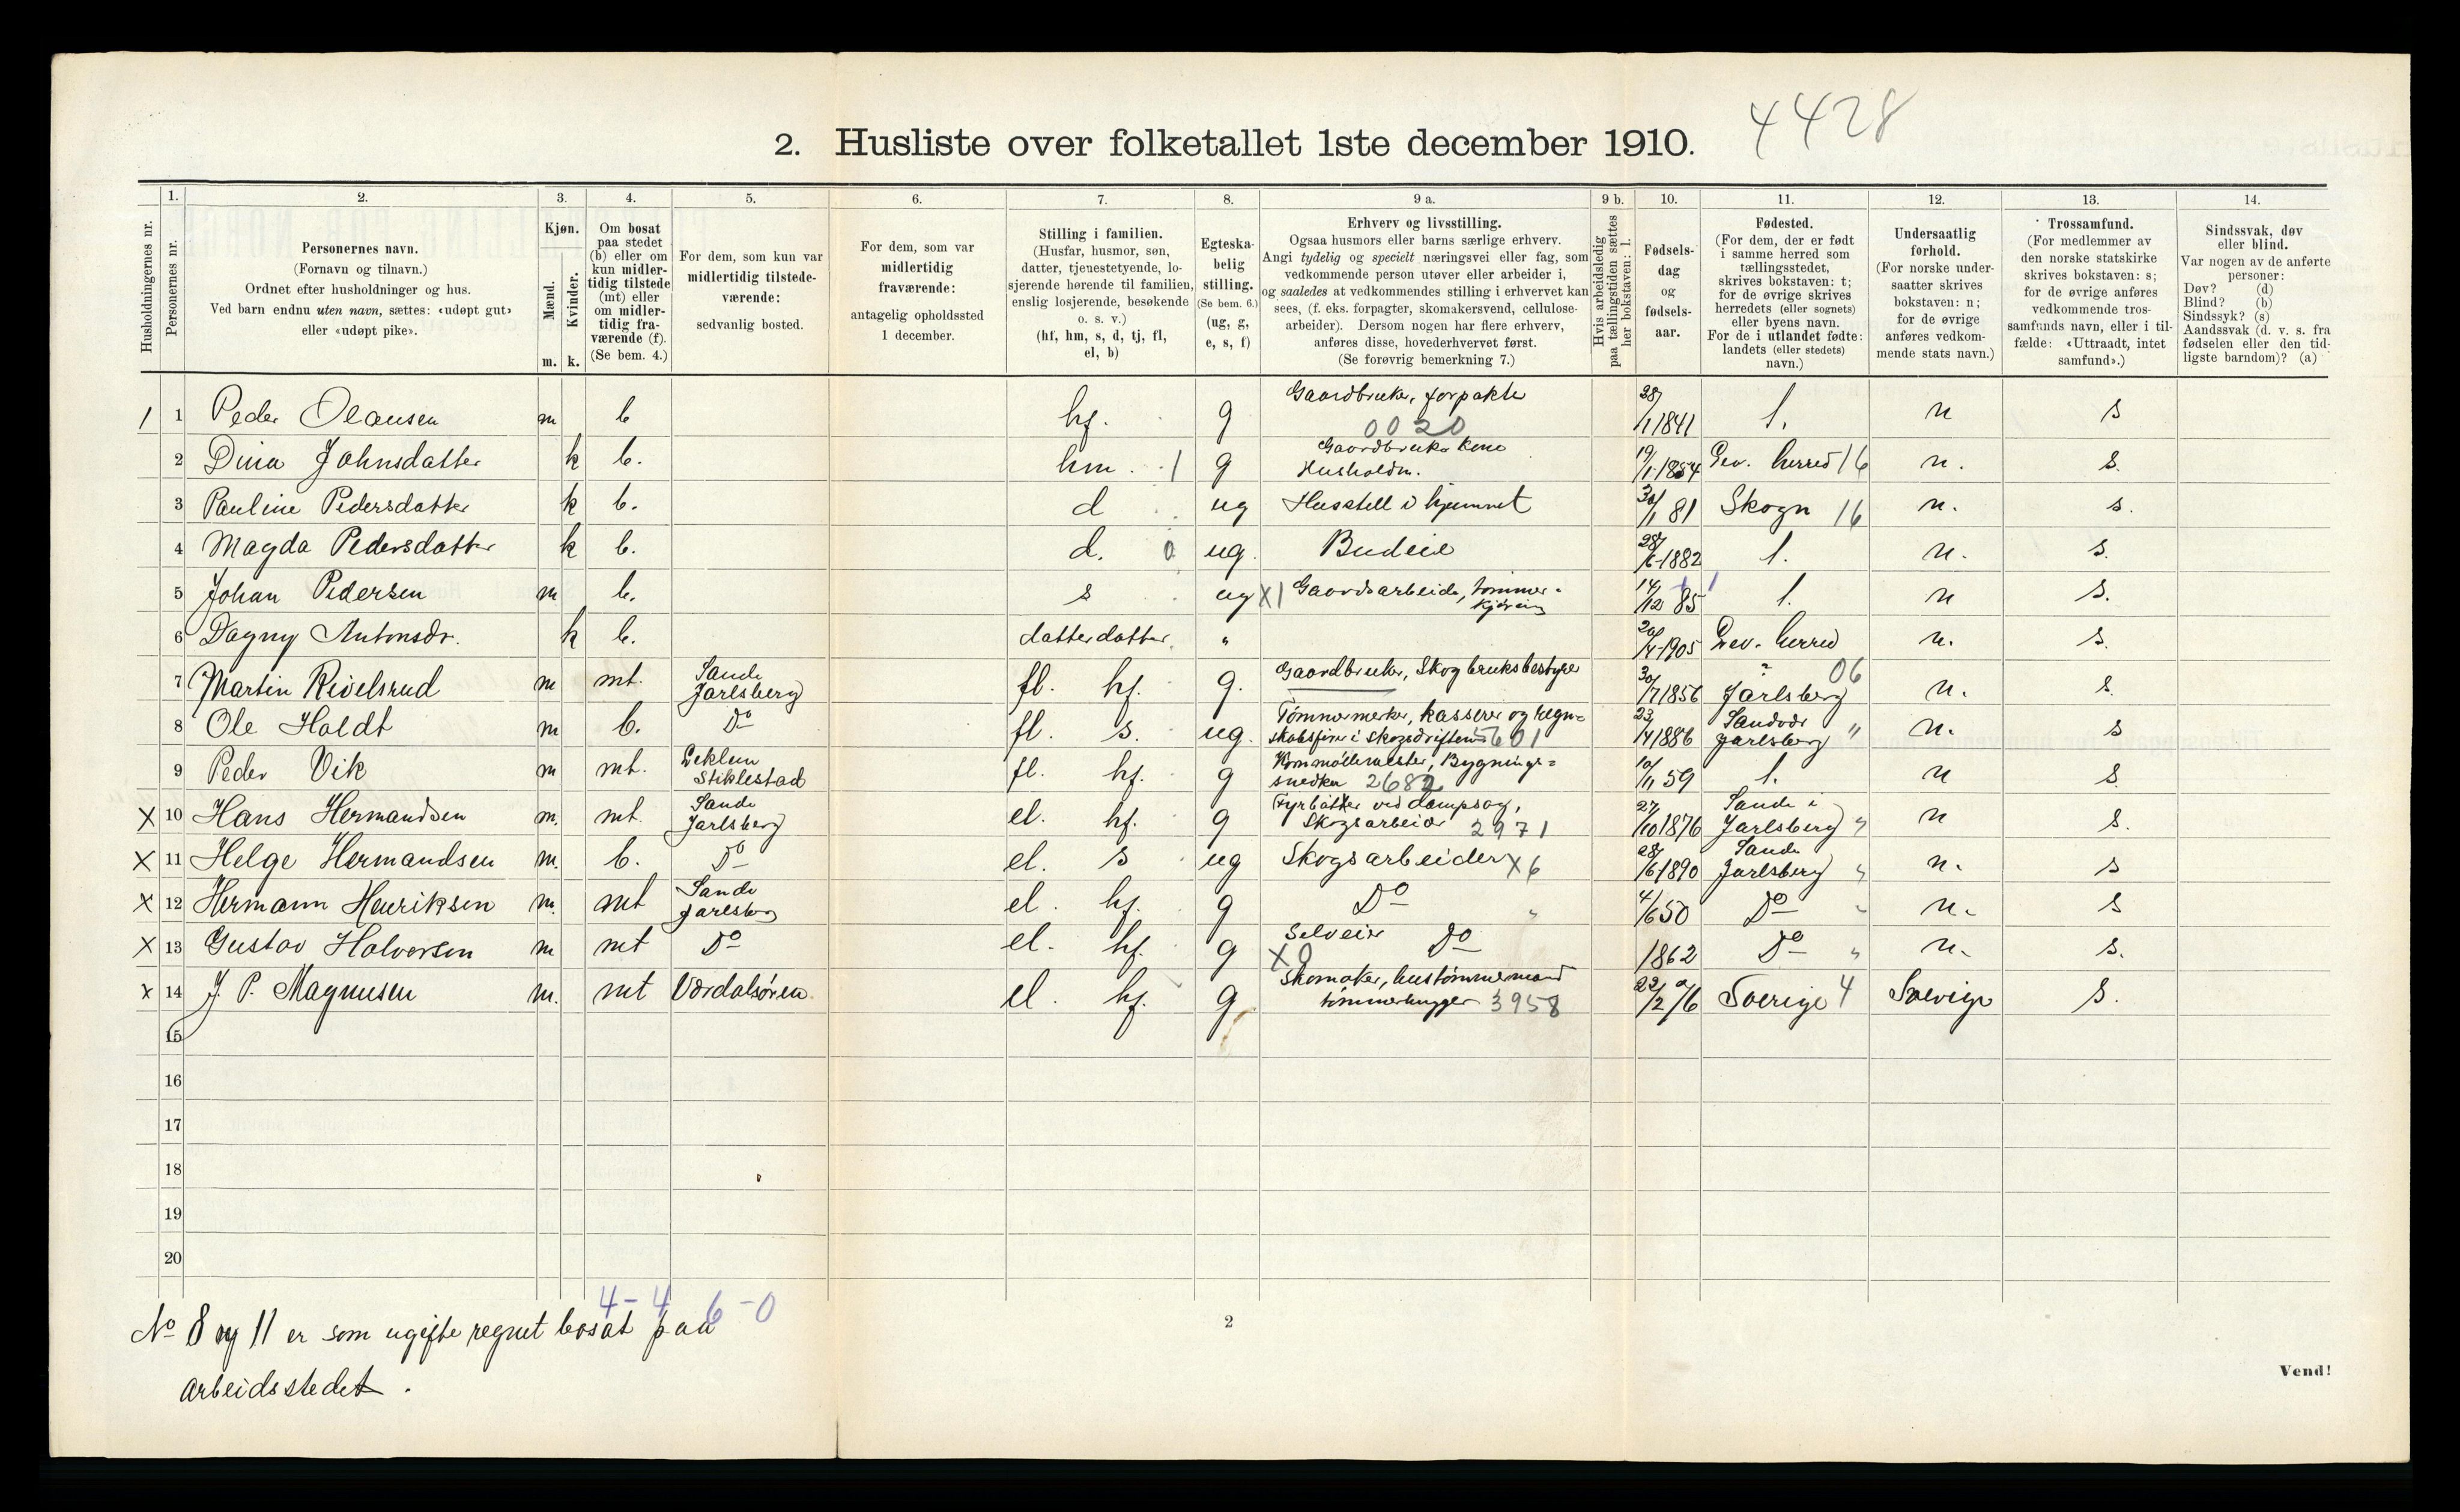 4428
2. Husliste over folketallet 1ste december 1910.
Husholdningernes nr.
1.
Personernes nr.
2.
Personernes navn.
(Fornavn og tilnavn.)
Ordnet efter husholdninger og hus.
Ved barn endnu uten navn, sættes: «udøpt gut»
eller «udøpt pike».
3.
Kjøn.
Mænd.
Kvinder.
m. k.
4.
Om bosat
paa stedet
(b) eller om
kun midler-
tidig tilstede
(mt) eller
om midler-
tidig fra-
værende (f).
(Se bem. 4.)
5.
For dem, som kun var
midlertidig tilstede-
værende:
sedvanlig bosted.
6.
For dem, som var
midlertidig
fraværende:
antagelig opholdssted
1 december.
7.
Stilling i familien.
(Husfar, husmor, søn,
datter, tjenestetyende, lo-
sjerende hørende til familien,
enslig losjerende, besøkende
o. s. v.)
(hf, hm, s, d, tj, fl,
el, b)
8.
Egteska-
belig
stilling.
(Se bem. 6.)
(ug, g,
e, s, f)
9 a.
Erhverv og livsstilling.
Ogsaa husmors eller barns særlige erhverv.
Angi tydelig og specielt næringsvei eller fag, som
vedkommende person utøver eller arbeider i,
og saaledes at vedkommendes stilling i erhvervet kan
sees, (f. eks. forpagter, skomakersvend, cellulose-
arbeider). Dersom nogen har flere erhverv,
anføres disse, hovederhvervet først.
(Se forøvrig bemerkning 7.)
9 b.
Hvis arbeidsledig
paa tællingstiden sættes
her bokstaven: l.
10.
Fødsels-
dag
og
fødsels-
aar.
11.
Fødested.
(For dem, der er født
i samme herred som
tællingsstedet,
skrives bokstaven: t;
for de øvrige skrives
herredets (eller sognets)
eller byens navn.
For de i utlandet fødte:
landets (eller stedets)
navn.)
12.
Undersaatlig
forhold.
(For norske under-
saatter skrives
bokstaven: n;
for de øvrige
anføres vedkom-
mende stats navn.)
13.
Trossamfund.
(For medlemmer av
den norske statskirke
skrives bokstaven: s;
for de øvrige anføres
vedkommende tros-
samfunds navn, eller i til-
fælde: «Uttraadt, intet
samfund».)
14.
Sindssvak, døv
eller blind.
Var nogen av de anførte
personer:
Døv? (d)
Blind? (b)
Sindssyk? (s)
Aandssvak (d. v. s. fra
fødselen eller den tid-
ligste barndom)? (a)
1 1 Peder Olausen m b hf. g Gaardbruker, forpakter 0020 28/1 1841 t. n s
2 Dina Johnsdatter k b. hm. 1 g Gaardbruker kone Husholdn. 19/1 1854 Lev. herred 16 n. s.
3 Pauline Pedersdatter k b. d ug Husstell i hjemmet 30/1 81 Skogn 16 n. s.
4 Magda Pedersdatter k b. d. 0 ug. Budeie 28/6 1882 t. n. s.
5 Johan Pedersen m b. s ug X1 Gaardsarbeide, tømmer-kjøring 14/12 85 t. n s.
6 Dagny Antonsdr. k b. datterdatter „ 20/4 1905 Lev. herred n. s.
7 Martin Revelsrud m mt. Sande Jarlsberg fl. hf. g. Gaardbruker, Skogbruksbestyrer 30/7 1856 Jarlsberg 06 n. s.
8 Ole Holdt m b. Do fl. s. ug. Tømmermerker, kasserer og regn-skabsfører i skogsdriften 5601 23/4 1886 Jarlsberg „ n. s
9 Peder Vik m mt. Leklem Stiklestad fl. hf. g Bygnings-snedker 2682 10/11 59 t. n s.
X 10 Hans Hermandsen m. mt. Sande Jarlsberg el. hf. g Fyrbøter ved dampsag, Skogsarbeider 2971 27/10 1876 Sande i Jarlsberg „ n s.
X 11 Helge Hermandsen m. b. Do el. s ug Skogsarbeider X6 28/6 1890 Sande Jarlsberg „ n. s
X 12 Hermann Henriksen m. mt Sande Jarlsberg el. hf. g Do „ 4/6 50 Do „ n. s
X 13 Gustav Halvorsen m mt Do el. hf. g Selveier Do X0 1862 Do „ n. s.
x 14 J. P. Magnusen m. mt Værdalsøren el. hf. g Skomaker, hustømmermand tømmerhugger 3958 22/2 76 Sverige 4 Sverige s.
15
16
17
18
19
20
4-4 6-0
No 8 og 11 er som ugifte regnet bosat paa
arbeidsstedet.
2
Vend!